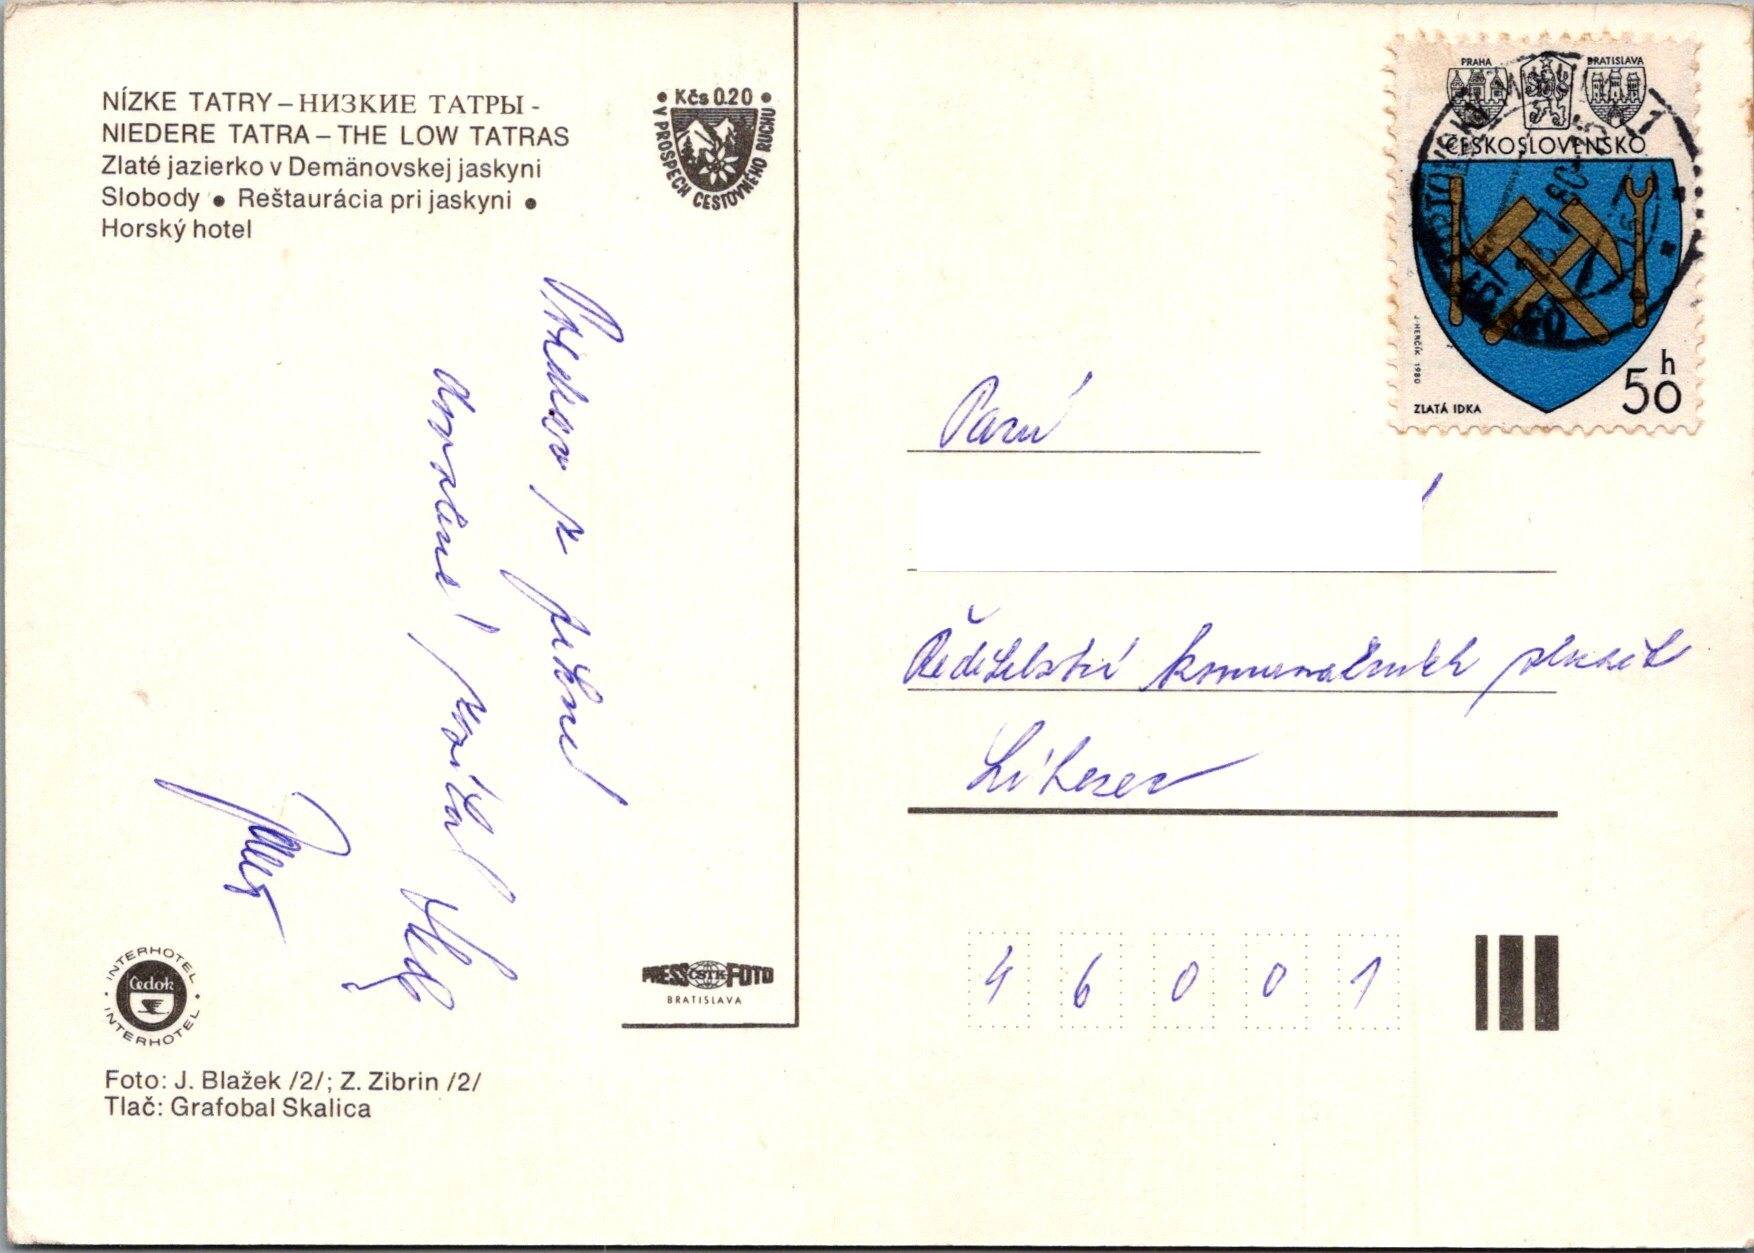 NÍZKE TATRY – НИЗКИЕ ТАТРЫ -
NIEDERE TATRA – THE LOW TATRAS
Zlaté jazierko v Demänovskej jaskyni
Slobody • Reštaurácia pri jaskyni •
Horský hotel
• Kčs 0.20 •
V PROSPECH CESTOVNÉHO RUCHU
Pozdrav z pěkné
dovolené posílá Vlad.
INTERHOTEL
Čedok
INTERHOTEL
PRESS ČSTK FOTO
BRATISLAVA
Foto: J. Blažek /2/; Z. Zibrin /2/
Tlač: Grafobal Skalica
PRAHA
BRATISLAVA
ČESKOSLOVENSKO
J. HERČÍK 1980
ZLATÁ IDKA
50 h
Paní
Ředitelství komunálních služeb
Liberec
46001